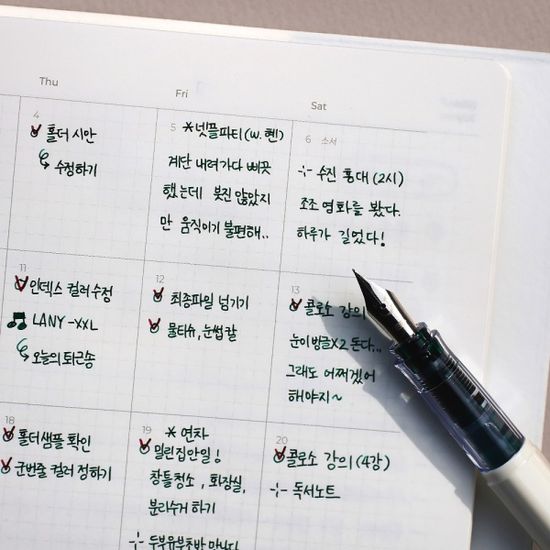 Thu
Fri
Sat
4
홀더 시안
수정하기
5 *넷플파티(w.현)
계단 내려가다 삐끗
했는데 붓진 않았지
만 움직이기 불편해..
6 소서
수진 홍대(2시)
조조 영화를 봤다.
하루가 길었다!
11
인덱스 컬러수정
LANY-XXL
오늘의 퇴근송
12
최종파일 넘기기
물티슈, 눈썹칼
13
콜로소 강의
눈이 빙글X2 돈다...
그래도 어쩌겠어
해야지~
18
홀더샘플 확인
군번줄 컬러 정하기
19 * 연차
밀린집안일!
창틀청소, 화장실,
분리수거 하기
두부유부초밥
20
콜로소 강의(4강)
독서노트